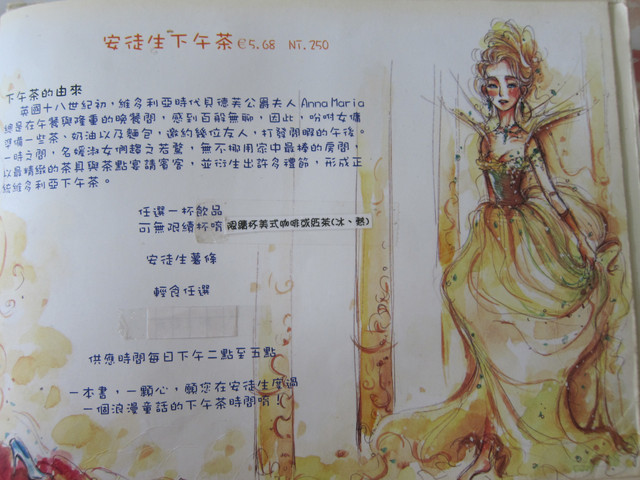 安徒生下午茶€5.68 NT.250
下午茶的由來
英國十八世紀初，維多利亞時代貝德芙公爵夫人Anna Maria
總是在午餐與隆重的晚餐間，感到百般無聊，因此，吩咐女傭
準備一些茶、奶油以及麵包，邀約幾位友人，打發閒暇的午後。
一時之間，名媛淑女們趨之若鶩，無不挪用家中最棒的房間，
以最精緻的茶具與茶點宴請賓客，並衍生出許多禮節，形成正
統維多利亞下午茶。
任選一杯飲品
可無限續杯唷 限續杯美式咖啡或紅茶(冰、熱)
安徒生薯條
輕食任選
供應時間每日下午二點至五點
一本書，一顆心，願您在安徒生度過
一個浪漫童話的下午茶時間唷！